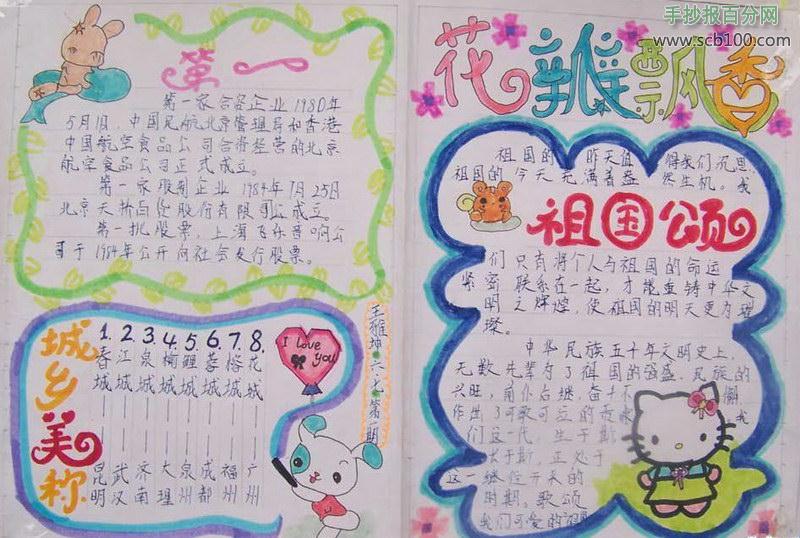 手抄报百分网
www.scb100.com
第一
第一家合资企业1980年
5月1日，中国民航北京管理局和香港
中国航空食品公司合资经营的北京
航空食品公司正式成立。
第一家股制企业1984年7月25日
北京天桥百货股份有限公司成立。
第一批股票，上海飞乐音响公
司于1984年公开向社会发行股票。
城乡美称
1.春城——昆明
2.江城——武汉
3.泉城——济南
4.榆城——大理
5.鲤城——泉州
6.蓉城——成都
7.榕城——福州
8.花城——广州
I love you
王雅坤
花瓣飘香
祖国的昨天值得我们沉思
祖国的今天充满着盎然生机。我
祖国颂
们只有将个人与祖国的命运
紧密联系在一起，才能重铸中华文
明之辉煌，使祖国的明天更为璀
璨。
中华民族五千年文明史上
无数先辈为了祖国的强盛、民族的
兴旺，前仆后继，奋斗不
作出了可歌可泣的
我
们这一代，生于斯
长于斯，正处于
这一继往开来的
时期。歌颂
我们可爱的祖国